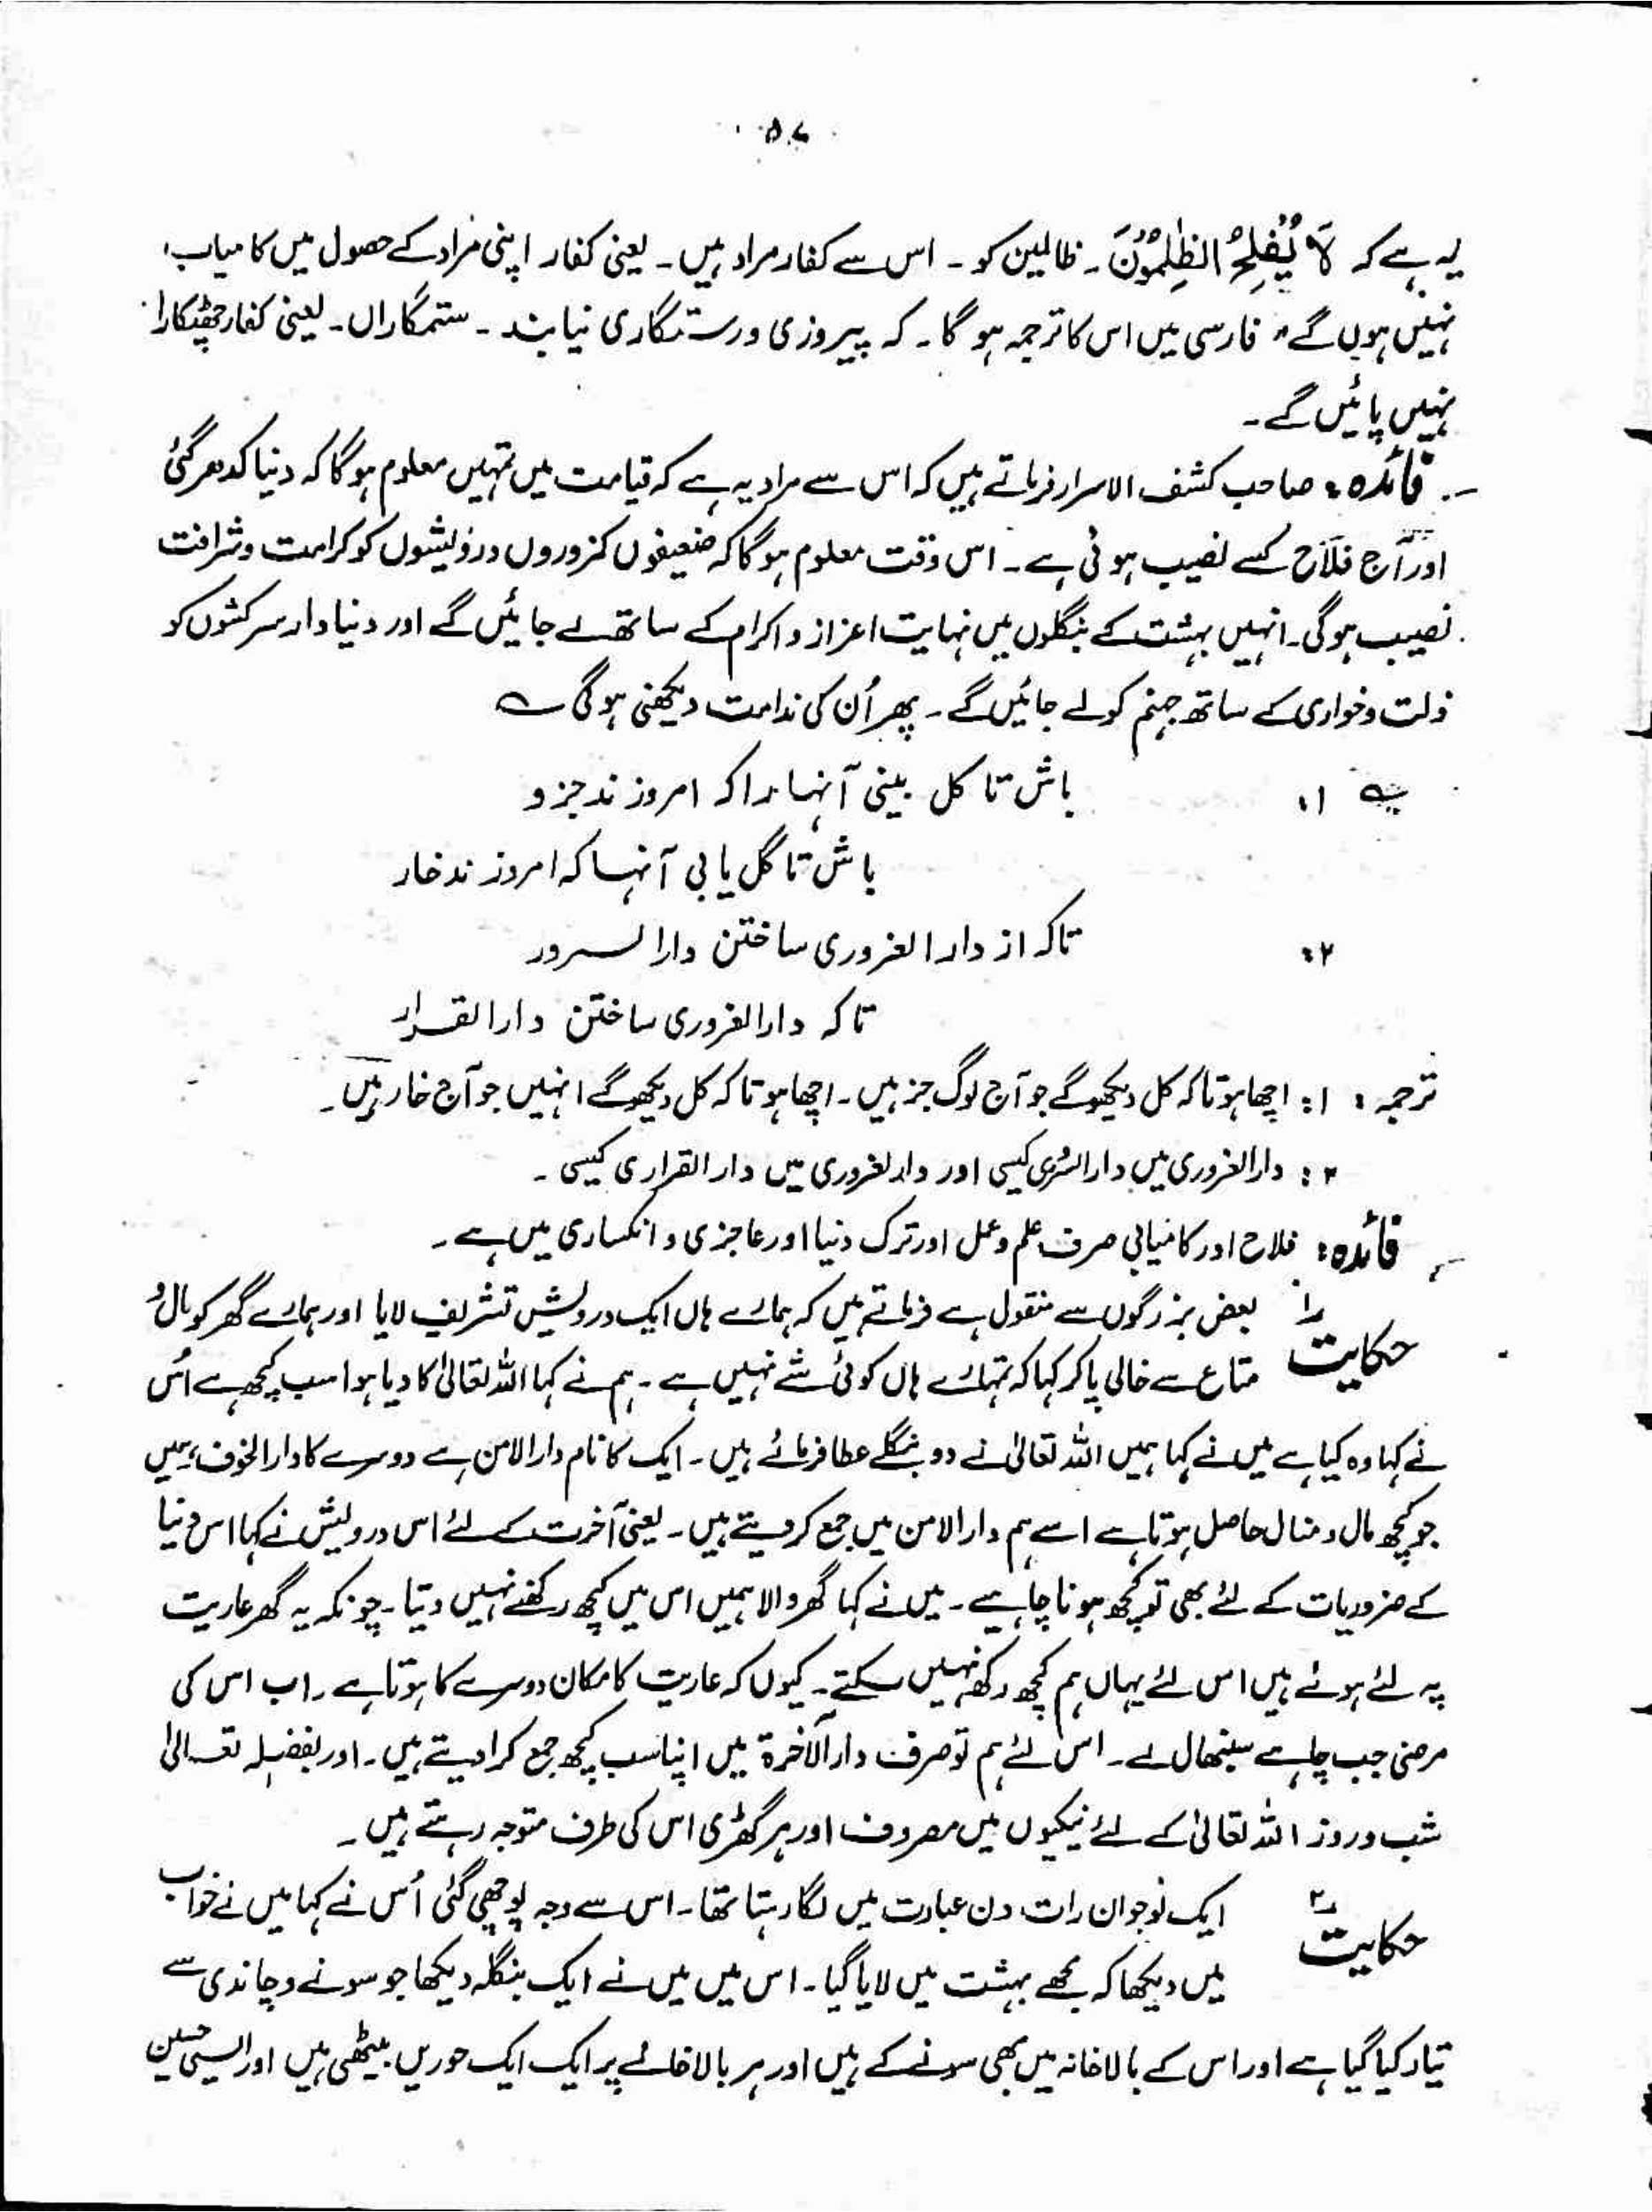 ۵۷
یہ ہے کہ لَا یُفْلِحُ الظّٰلِمُوْنَ ۔ ظالمین کو ۔ اس سے کفار مراد ہیں ۔ یعنی کفار اپنی مراد کے حصول میں کامیاب
نہیں ہوں گے ، فارسی میں اس کا ترجمہ ہو گا ۔ کہ پیروزی و رستگاری نیابند ۔ ستمگاراں ۔ یعنی کفار چھٹکارا
نہیں پائیں گے ۔
فائدہ : صاحب کشف الاسرار فرماتے ہیں کہ اس سے مراد یہ ہے کہ قیامت میں تمہیں معلوم ہوگا کہ دنیا کدھر گئی
اور آج فلاح کسے نصیب ہوئی ہے ۔ اس وقت معلوم ہوگا کہ ضعیفوں کمزوروں درویشوں کو کرامت و شرافت
نصیب ہوگی ۔ انہیں بہشت کے بنگلوں میں نہایت اعزاز و اکرام کے ساتھ لے جائیں گے اور دنیا دار سرکشوں کو
ذلت و خواری کے ساتھ جہنم کو لے جائیں گے ۔ پھر اُن کی ندامت دیکھنی ہوگی ؎
؎ ۱: باش تا کل بینی آنہا را کہ امروز ند جزو
باش تا گل یابی آنہا کہ امروز ند خار
۲: تاکہ از دار الغروری ساختن دار السرور
تاکہ دار الغروری ساختن دار القرار
ترجمہ : ۱: اچھا ہو تاکہ کل دیکھو گے جو آج لوگ جز ہیں ۔ اچھا ہو تاکہ کل دیکھو گے انہیں جو آج خار ہیں ۔
۲: دار الغروری میں دار السُّری کیسی اور دار لغروری میں دار القراری کیسی ۔
فائدہ : فلاح اور کامیابی صرف علم و عمل اور ترک دنیا اور عاجزی و انکساری میں ہے ۔
حکایت ۱ بعض بزرگوں سے منقول ہے فرماتے ہیں کہ ہمارے ہاں ایک درویش تشریف لایا اور ہمارے گھر کو مال و
متاع سے خالی پا کر کہا کہ تمہارے ہاں کوئی شے نہیں ہے ۔ ہم نے کہا اللہ تعالیٰ کا دیا ہوا سب کچھ ہے اُس
نے کہا وہ کیا ہے میں نے کہا ہمیں اللہ تعالیٰ نے دو بنگلے عطا فرمائے ہیں ۔ ایک کا نام دار الامن ہے دوسرے کا دار الخوف ، ہمیں
جو کچھ مال و منال حاصل ہوتا ہے اسے ہم دار الامن میں جمع کر دیتے ہیں ۔ یعنی آخرت کے لئے اس درویش نے کہا اس دنیا
کے ضروریات کے لئے بھی تو کچھ ہونا چاہیے ۔ میں نے کہا گھر والا ہمیں اس میں کچھ رکھنے نہیں دیتا ۔ چونکہ یہ گھر عاریت
پہ لئے ہوئے ہیں اس لئے یہاں ہم کچھ رکھ نہیں سکتے ۔ کیوں کہ عاریت کا مکان دوسرے کا ہوتا ہے ۔ اب اس کی
مرضی جب چاہے سنبھال لے ۔ اس لئے ہم تو صرف دار الآخرۃ میں اپنا سب کچھ جمع کرا دیتے ہیں ۔ اور بفضلہ تعالیٰ
شب و روز اللہ تعالیٰ کے لئے نیکیوں میں مصروف اور ہر گھڑی اس کی طرف متوجہ رہتے ہیں ۔
حکایت ۲ ایک نوجوان رات دن عبادت میں لگا رہتا تھا ۔ اس سے وجہ پوچھی گئی اُس نے کہا میں نے خواب
میں دیکھا کہ مجھے بہشت میں لایا گیا ۔ اس میں میں نے ایک بنگلہ دیکھا جو سونے و چاندی سے
تیار کیا گیا ہے اور اس کے بالا خانہ میں بھی سونے کے ہیں اور ہر بالا خانے پر ایک ایک حوریں بیٹھی ہیں اور ایسی حسین